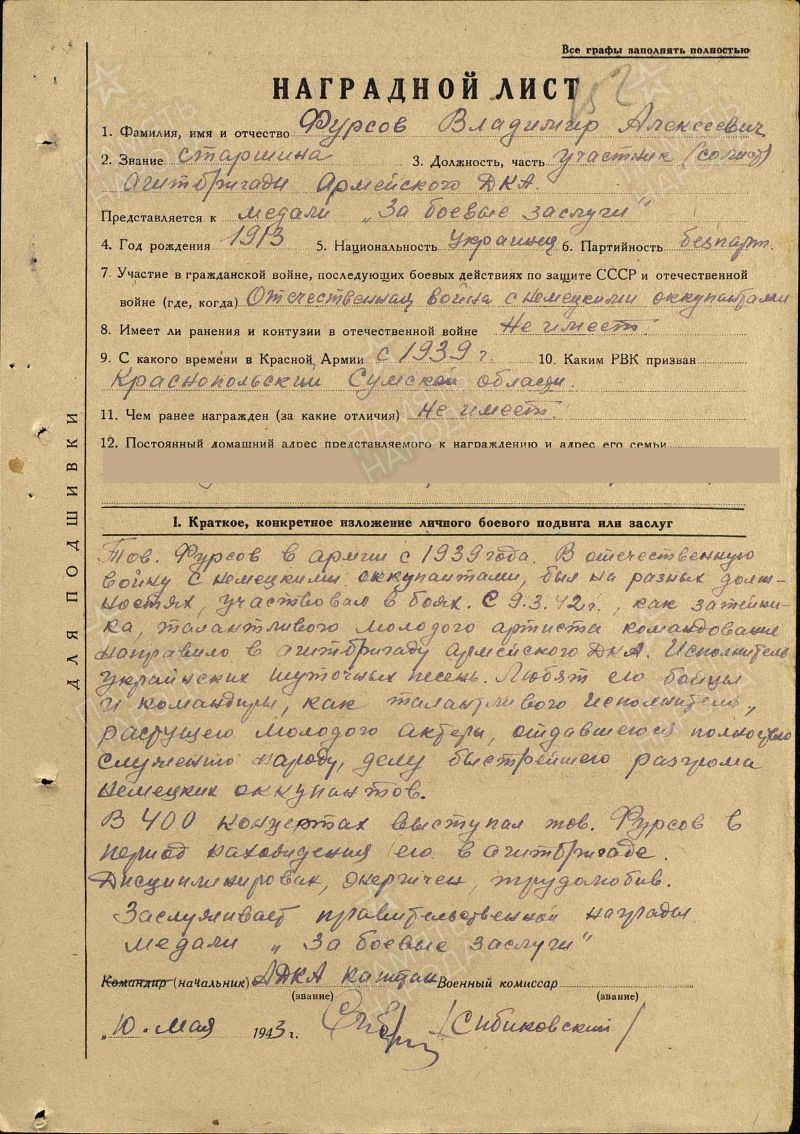 Все графы заполнять полностью
НАГРАДНОЙ ЛИСТ
1. Фамилия, имя и отчество Фурсов Владимир Алексеевич
2. Звание старшина 3. Должность, часть участник (солист)
агитбригады Армейского ДКА.
Представляется к медали „За боевые заслуги“
4. Год рождения 1913 5. Национальность украинец 6. Партийность безпарт.
7. Участие в гражданской войне, последующих боевых действиях по защите СССР и отечественной
войне (где, когда) Отечественная война с немецкими оккупантами
8. Имеет ли ранения и контузии в отечественной войне Не имеет.
9. С какого времени в Красной Армии с 1939 г. 10. Каким РВК призван
Краснопольский Сумской области.
11. Чем ранее награжден (за какие отличия) Не имеет.
12. Постоянный домашний адрес представляемого к награждению и адрес его семьи
I. Краткое, конкретное изложение личного боевого подвига или заслуг
Тов. Фурсов в армии с 1939 года. В отечественную
войну с немецкими оккупантами, был на разных долж-
ностях, участвовал в боях. С 9.3.42 г., как затейни-
ка, талантливого молодого артиста командование
направило в агитбригаду армейского ДКА. Исполнитель
украинских шуточных песень. Любят его бойцы
и командиры, как талантливого исполнителя,
растущего молодого актера, отдавшегося полностью
служению народу, делу быстрейшего разгрома
немецких оккупантов.
В 400 концертах выступал тов. Фурсов в
период нахождения его в агитбригаде.
Дисциплинирован, энергичен, трудолюбив.
Заслуживает правительственной награды
медали „За боевые заслуги“
Командир (начальник) АДКА капитан Военный комиссар
(звание) (звание)
„10„ мая 1943 г. /Сибиковский/
ДЛЯ ПОДШИВКИ
ПАМЯТЬ НАРОДА